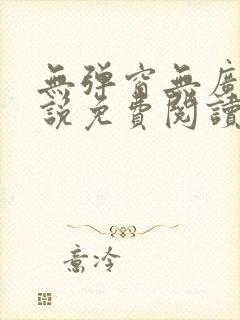 無彈窗無廣
說免費閱讀
意冷